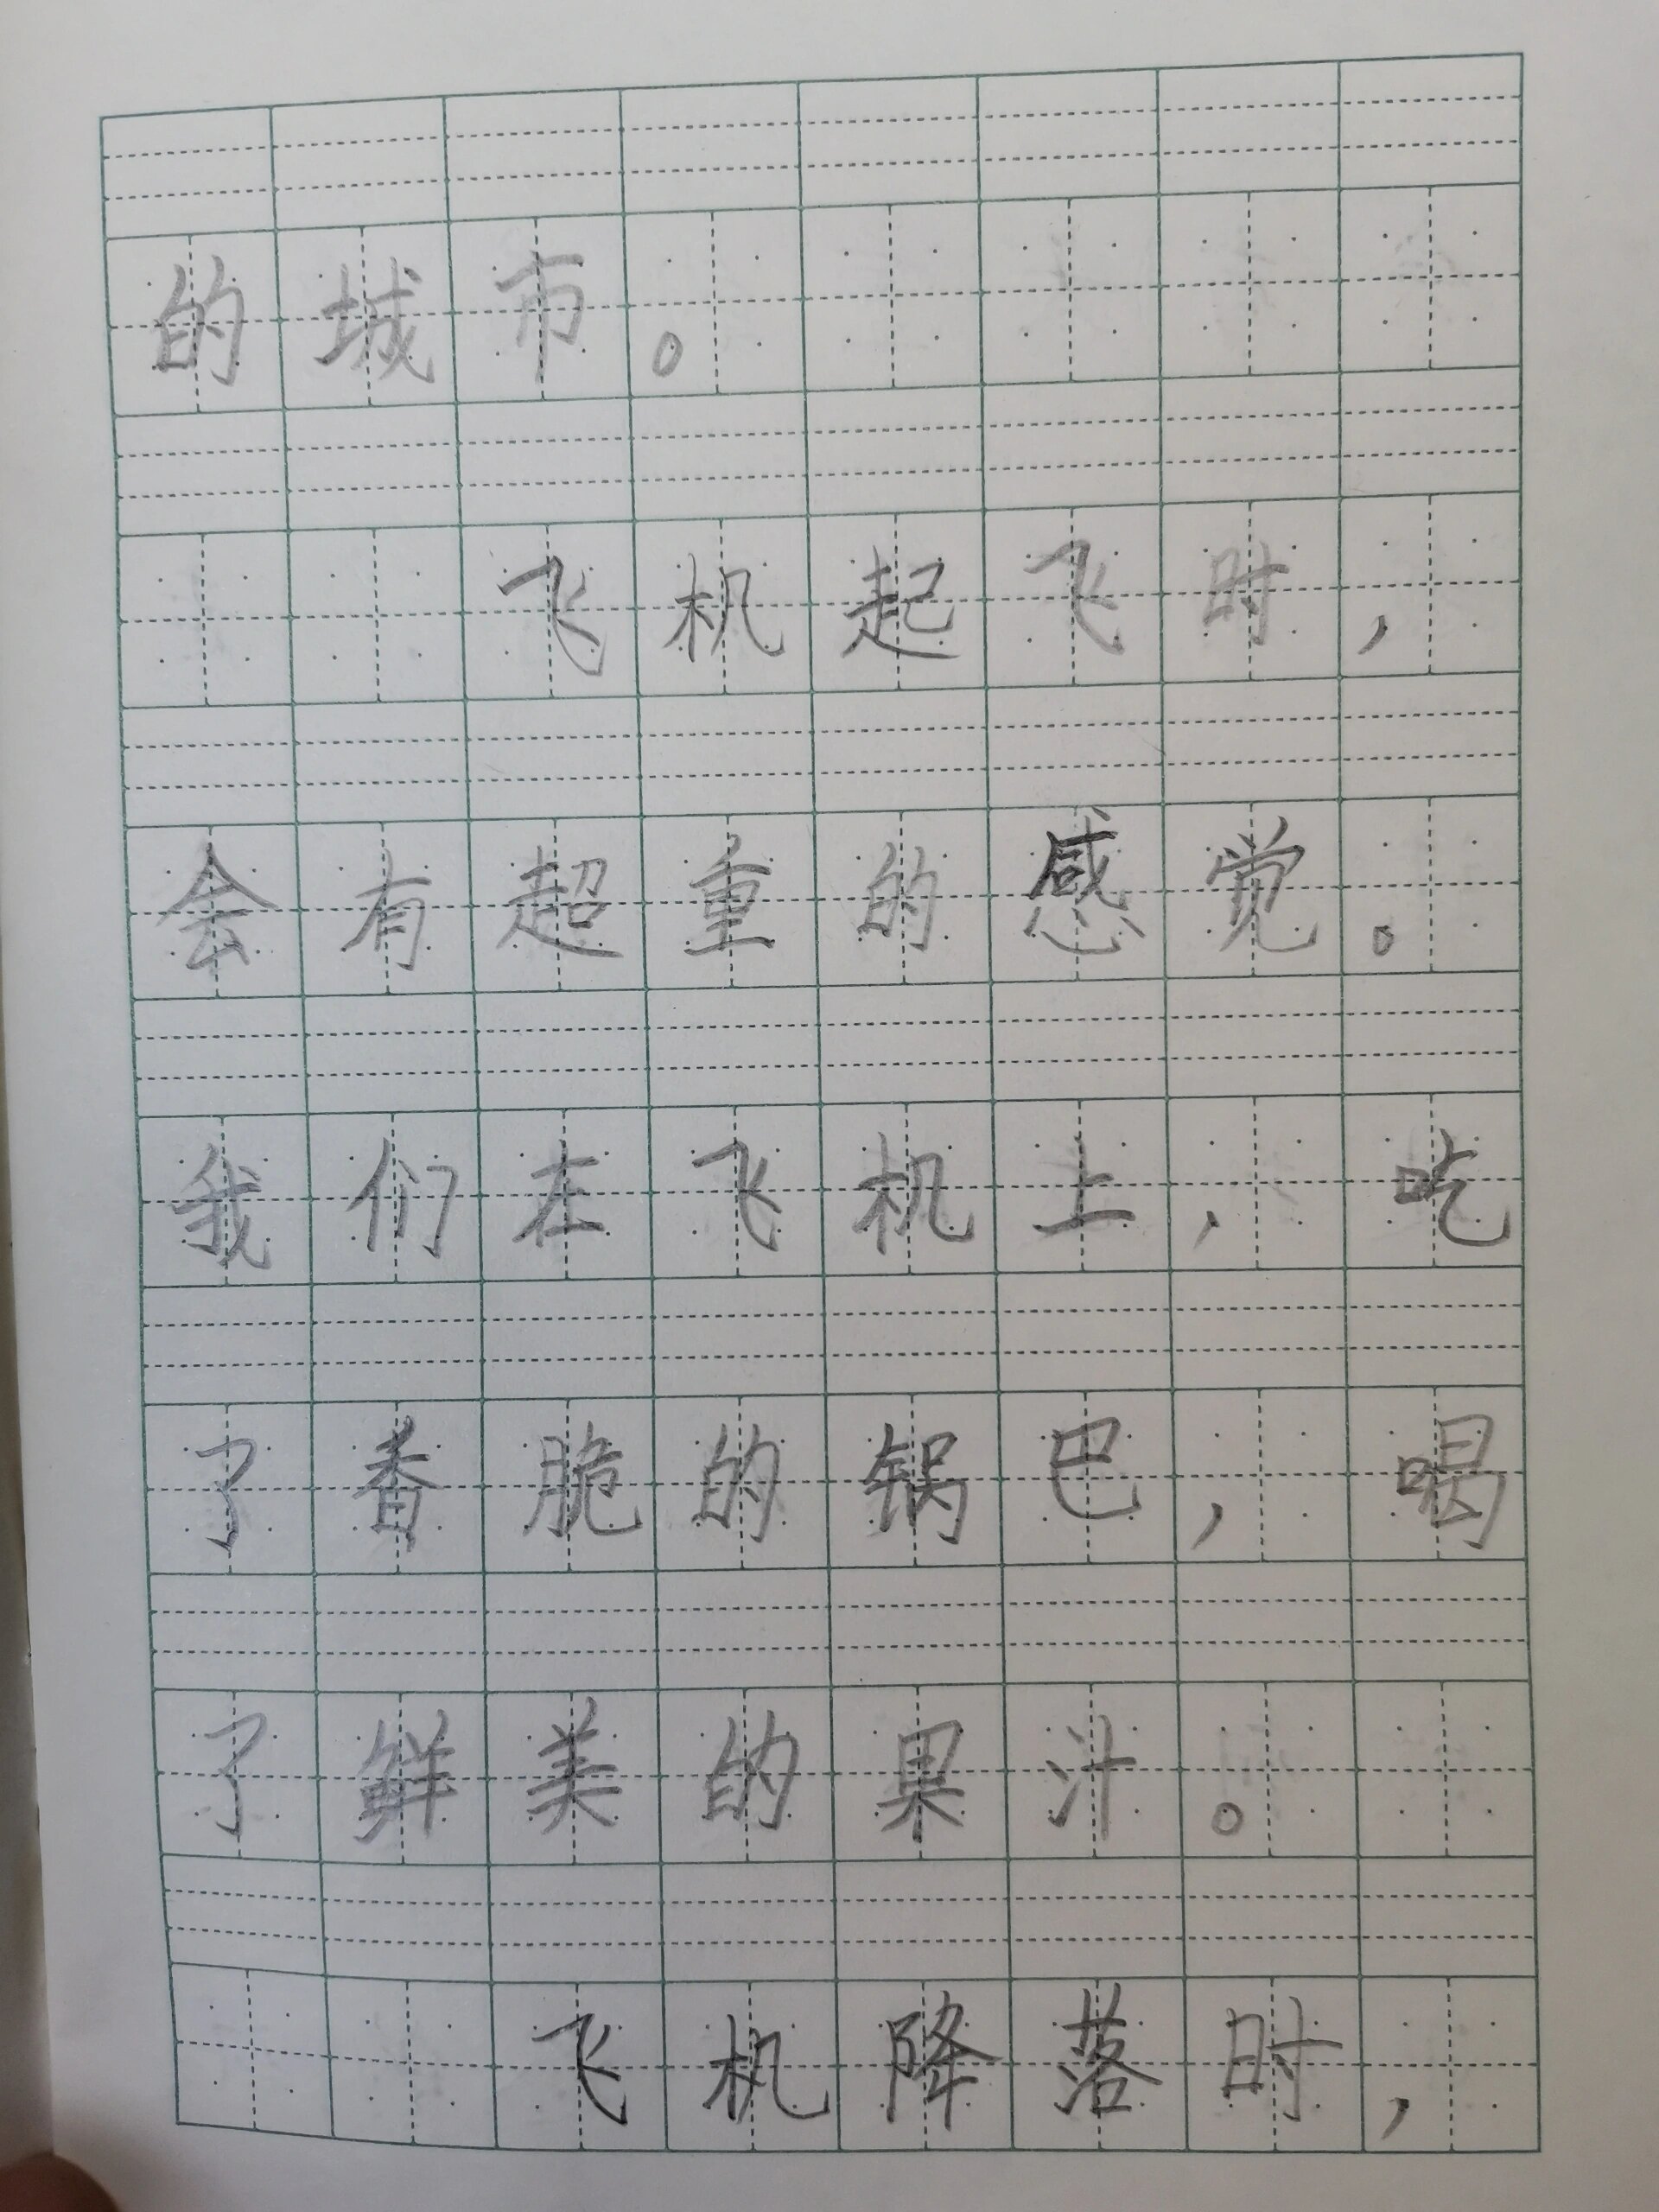 的城市。
飞机起飞时，
会有超重的感觉。
我们在飞机上，吃
了香脆的锅巴，喝
了鲜美的果汁。
飞机降落时，